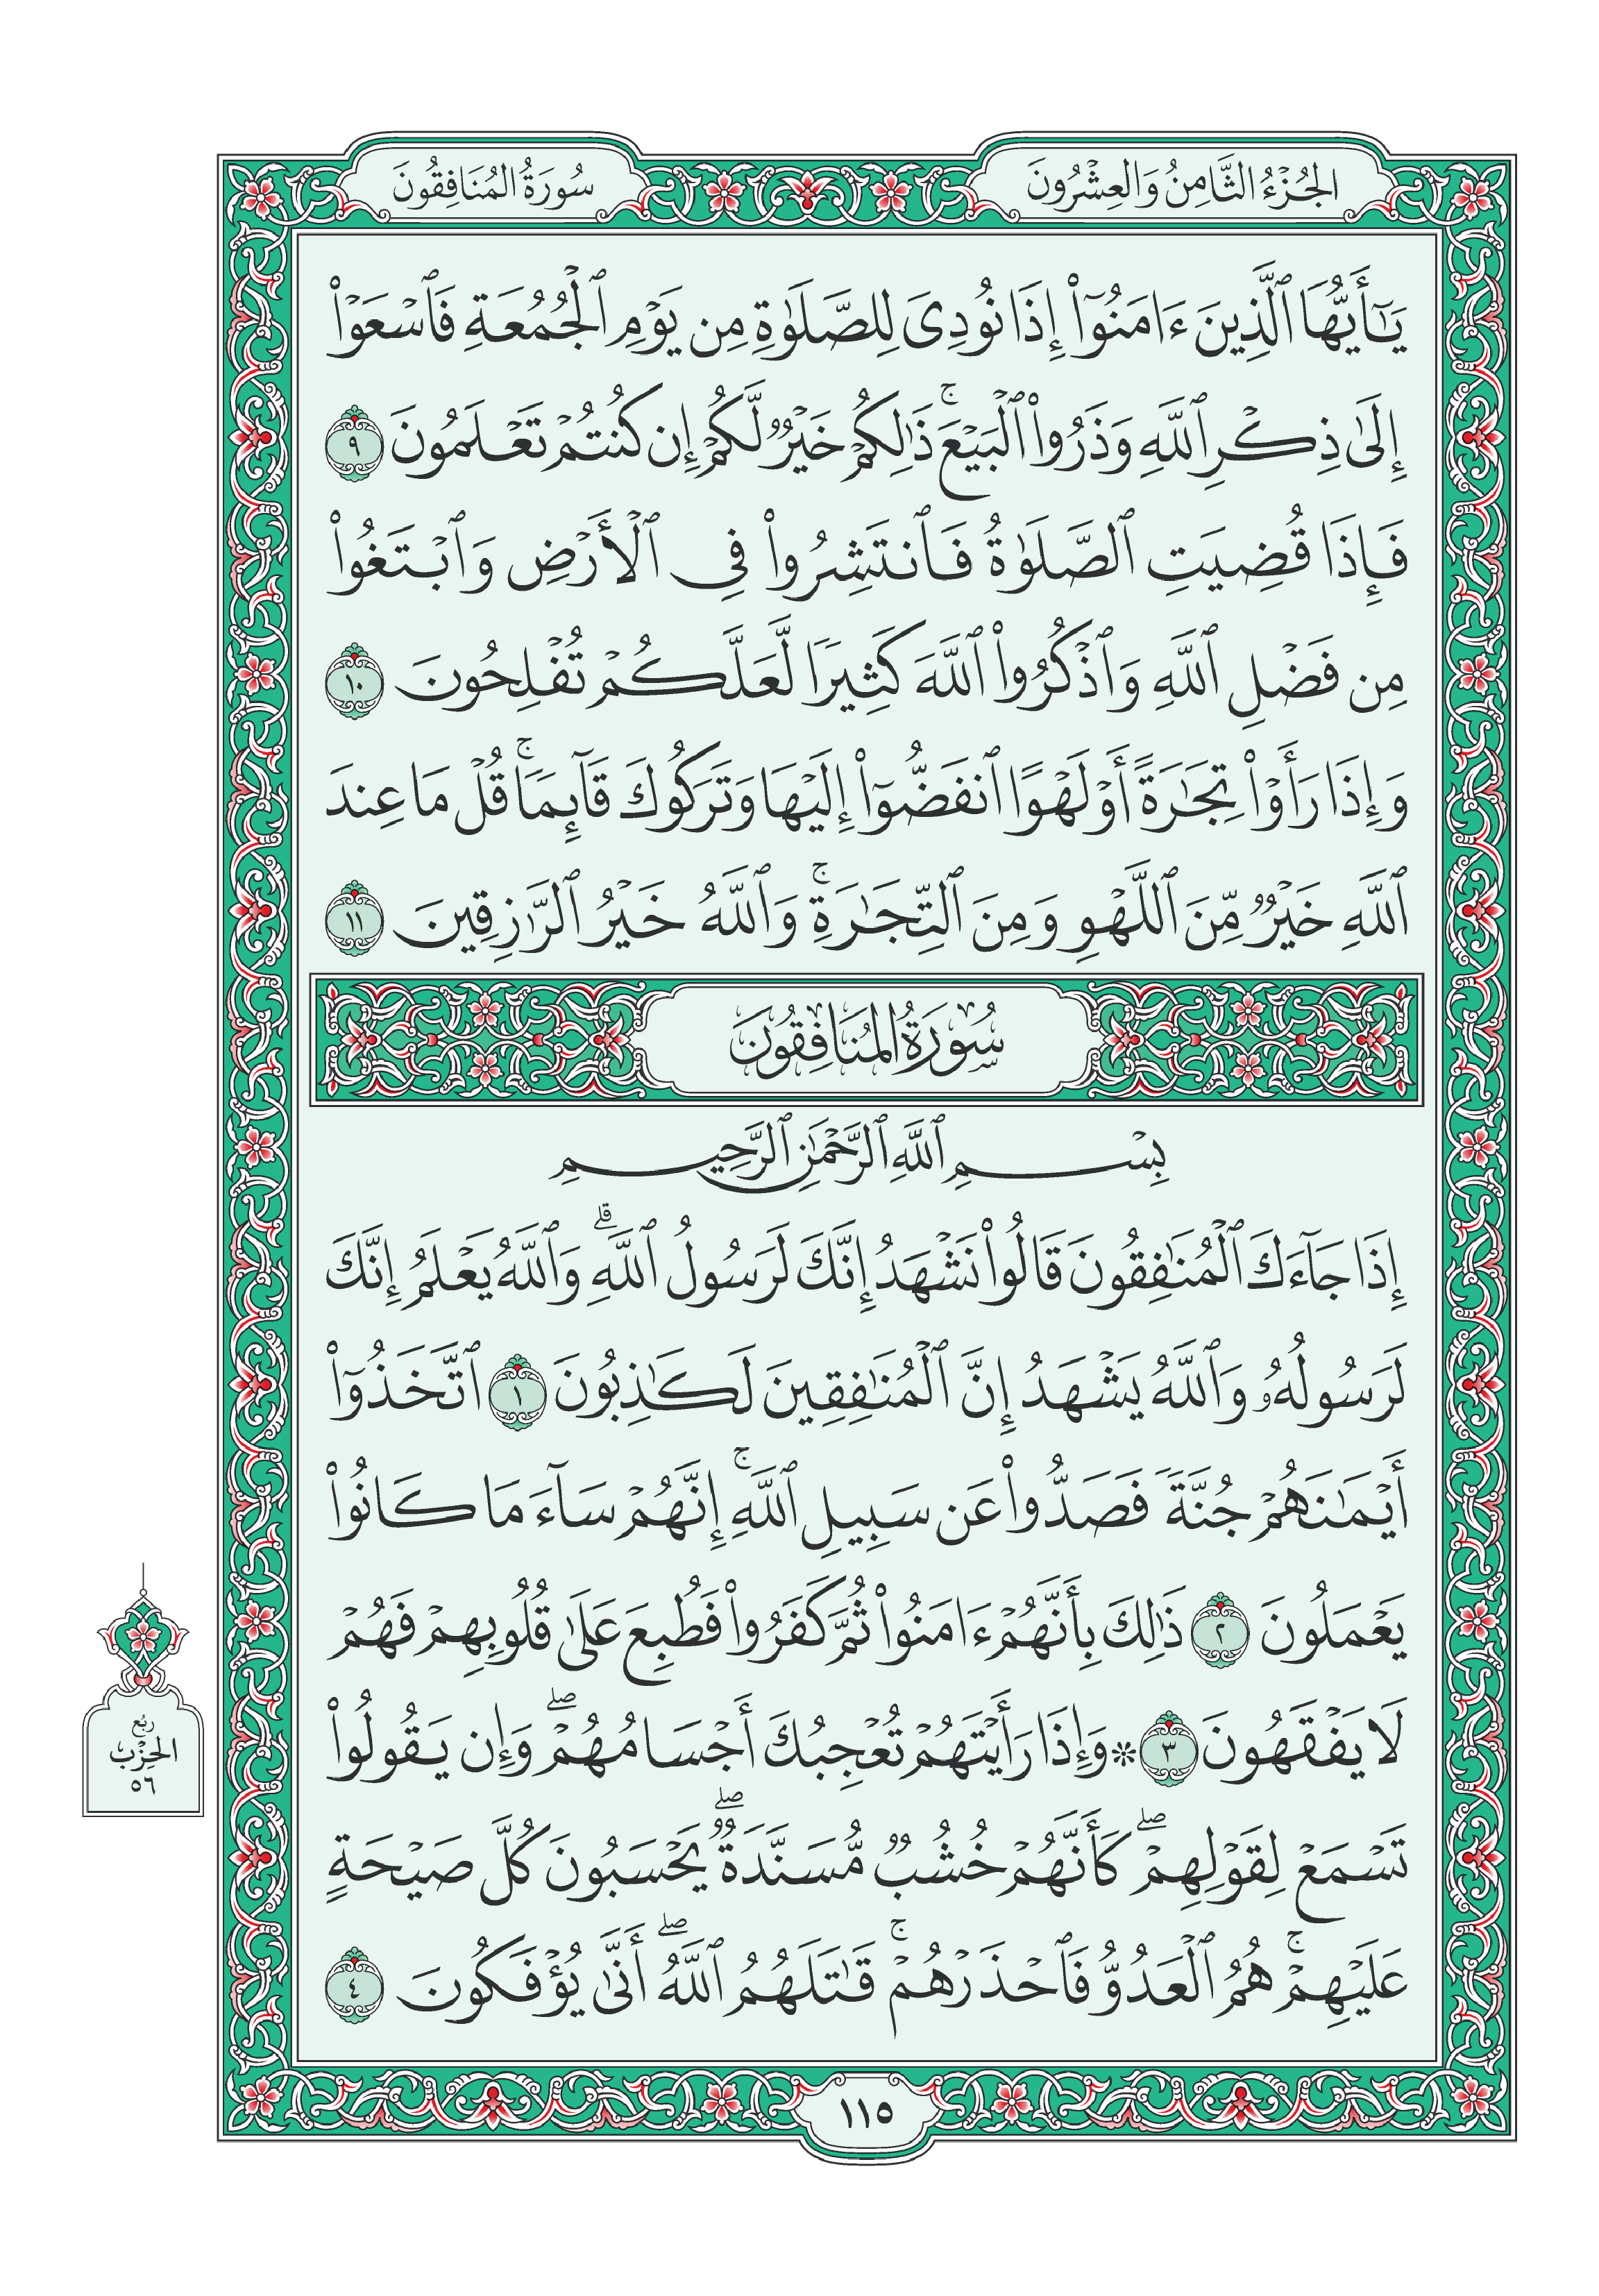 الجُزْءُ الثَّامِنُ وَالعِشْرُونَ
سُورَةُ المُنَافِقُونَ
يَٰٓأَيُّهَا ٱلَّذِينَ ءَامَنُوٓا۟ إِذَا نُودِىَ لِلصَّلَوٰةِ مِن يَوْمِ ٱلْجُمُعَةِ فَٱسْعَوْا۟
إِلَىٰ ذِكْرِ ٱللَّهِ وَذَرُوا۟ ٱلْبَيْعَ ۚ ذَٰلِكُمْ خَيْرٌ لَّكُمْ إِن كُنتُمْ تَعْلَمُونَ ٩
فَإِذَا قُضِيَتِ ٱلصَّلَوٰةُ فَٱنتَشِرُوا۟ فِى ٱلْأَرْضِ وَٱبْتَغُوا۟
مِن فَضْلِ ٱللَّهِ وَٱذْكُرُوا۟ ٱللَّهَ كَثِيرًا لَّعَلَّكُمْ تُفْلِحُونَ ١٠
وَإِذَا رَأَوْا۟ تِجَٰرَةً أَوْ لَهْوًا ٱنفَضُّوٓا۟ إِلَيْهَا وَتَرَكُوكَ قَآئِمًا ۚ قُلْ مَا عِندَ
ٱللَّهِ خَيْرٌ مِّنَ ٱللَّهْوِ وَمِنَ ٱلتِّجَٰرَةِ ۚ وَٱللَّهُ خَيْرُ ٱلرَّٰزِقِينَ ١١
سُورَةُ المُنَافِقُونَ
بِسْمِ ٱللَّهِ ٱلرَّحْمَٰنِ ٱلرَّحِيمِ
إِذَا جَآءَكَ ٱلْمُنَٰفِقُونَ قَالُوا۟ نَشْهَدُ إِنَّكَ لَرَسُولُ ٱللَّهِ ۗ وَٱللَّهُ يَعْلَمُ إِنَّكَ
لَرَسُولُهُۥ وَٱللَّهُ يَشْهَدُ إِنَّ ٱلْمُنَٰفِقِينَ لَكَٰذِبُونَ ١ ٱتَّخَذُوٓا۟
أَيْمَٰنَهُمْ جُنَّةً فَصَدُّوا۟ عَن سَبِيلِ ٱللَّهِ ۚ إِنَّهُمْ سَآءَ مَا كَانُوا۟
يَعْمَلُونَ ٢ ذَٰلِكَ بِأَنَّهُمْ ءَامَنُوا۟ ثُمَّ كَفَرُوا۟ فَطُبِعَ عَلَىٰ قُلُوبِهِمْ فَهُمْ
لَا يَفْقَهُونَ ٣ * وَإِذَا رَأَيْتَهُمْ تُعْجِبُكَ أَجْسَامُهُمْ ۖ وَإِن يَقُولُوا۟
تَسْمَعْ لِقَوْلِهِمْ ۖ كَأَنَّهُمْ خُشُبٌ مُّسَنَّدَةٌ ۖ يَحْسَبُونَ كُلَّ صَيْحَةٍ
عَلَيْهِمْ ۚ هُمُ ٱلْعَدُوُّ فَٱحْذَرْهُمْ ۚ قَٰتَلَهُمُ ٱللَّهُ ۖ أَنَّىٰ يُؤْفَكُونَ ٤
رُبُع
الحِزْب
٥٦
١١٥